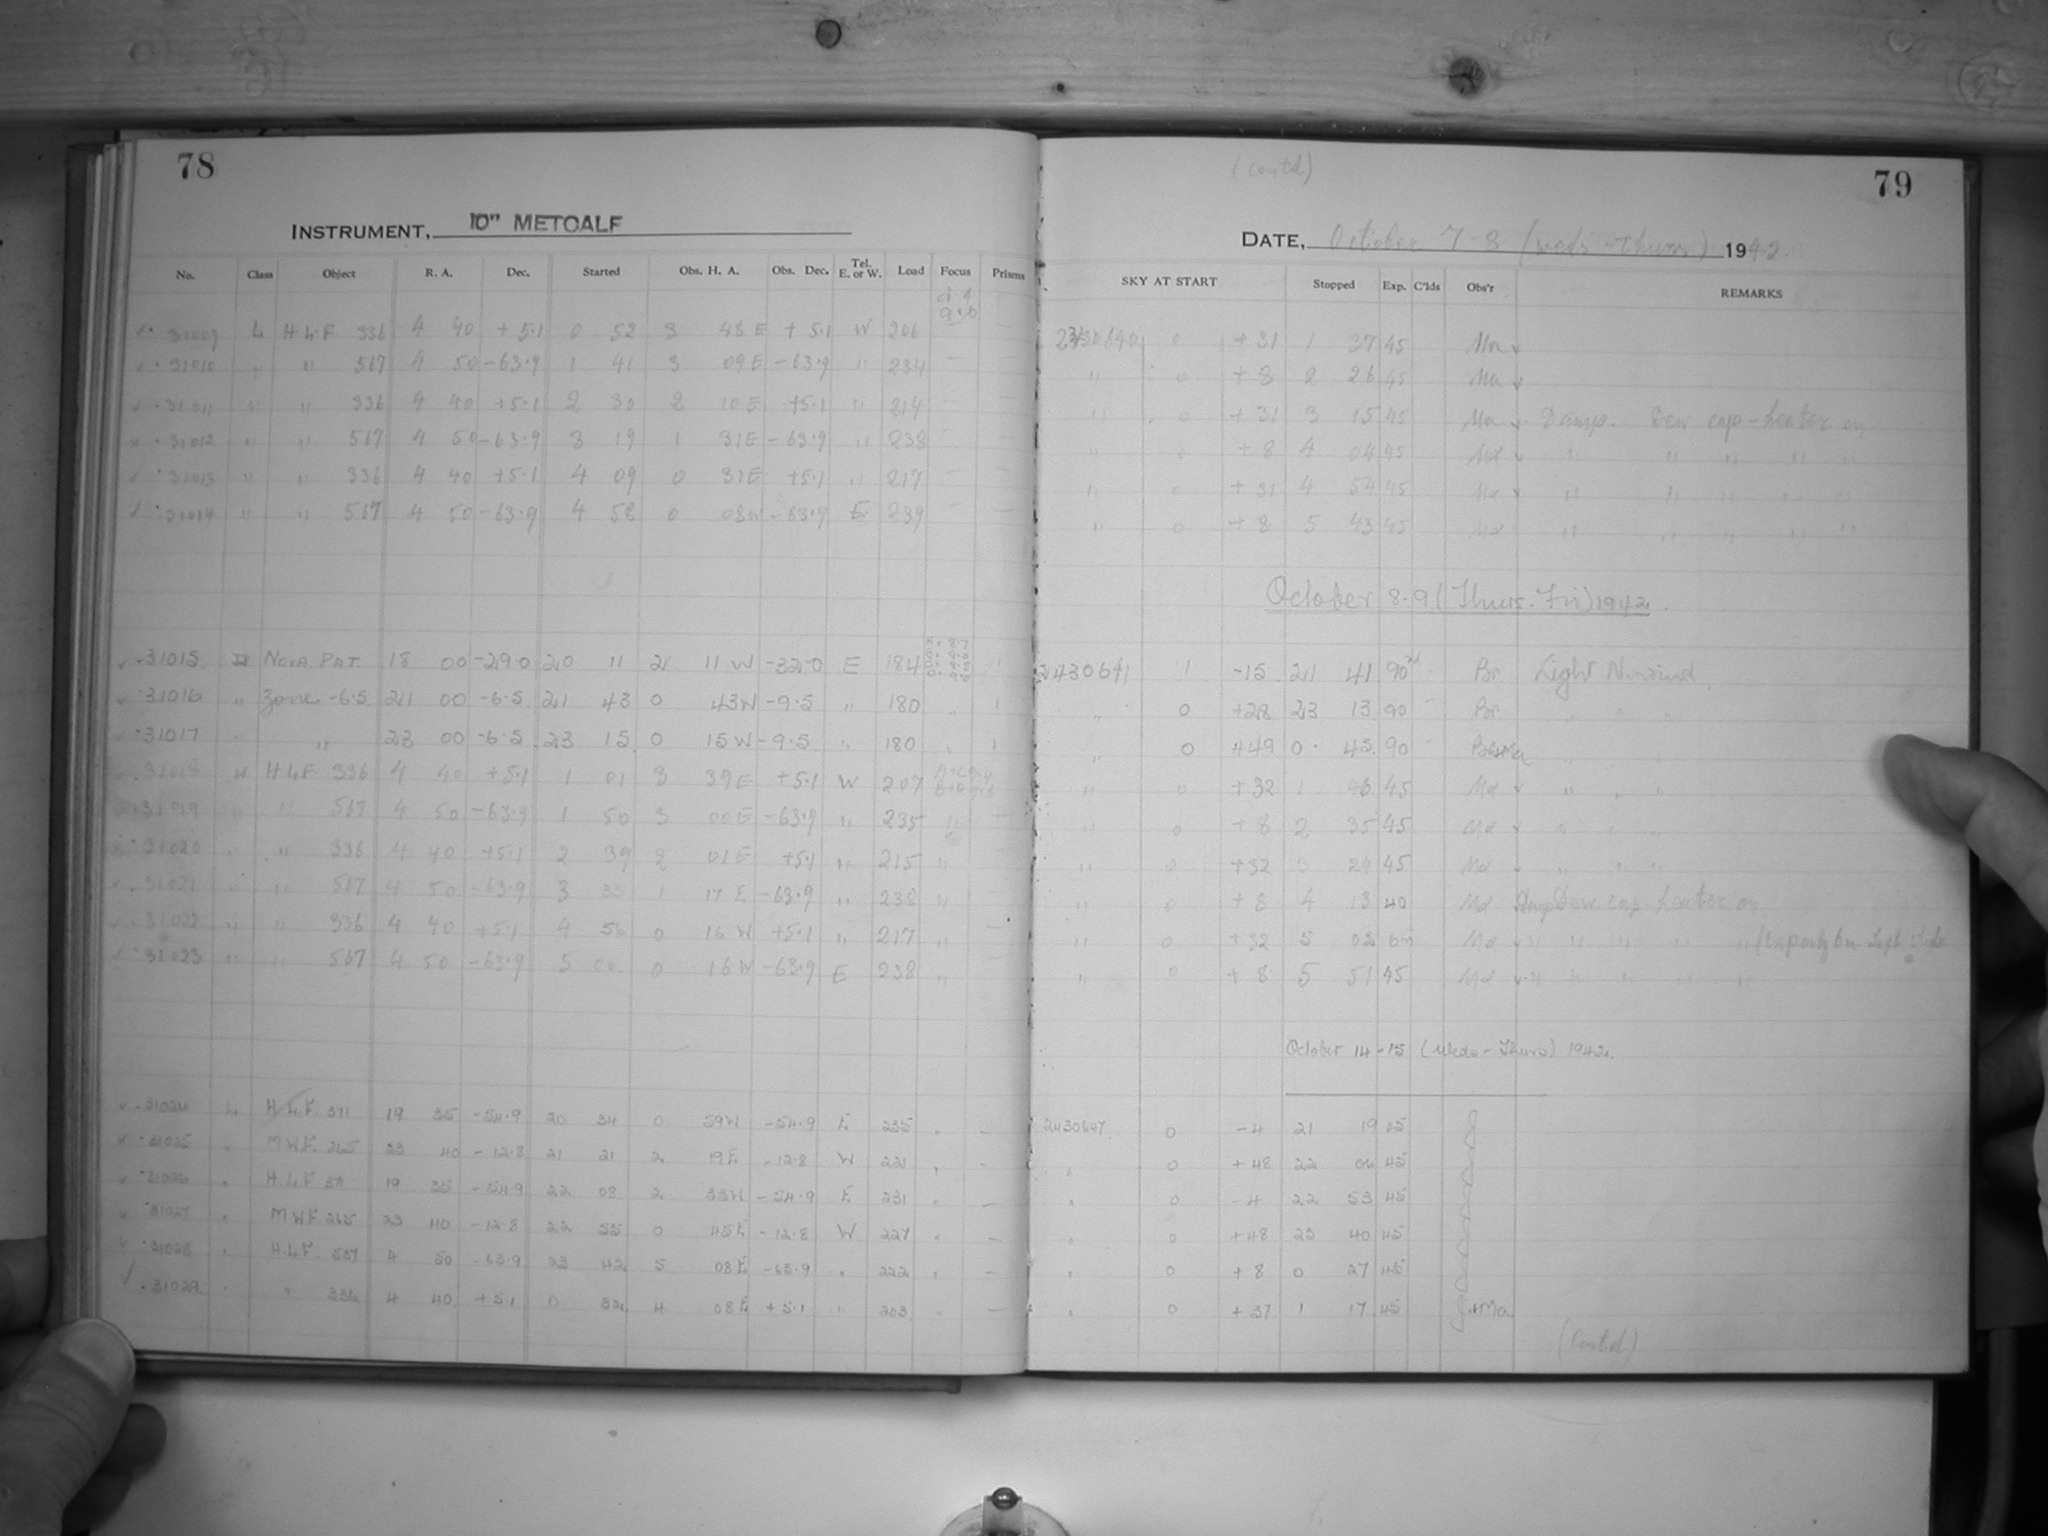 78
INSTRUMENT, 10" METCALF
No. Class Object R. A. Dec. Started Obs. H. A. Obs. Dec. Tel. E. or W. Load Focus Prisms
31009 L H.L.F. 336 4 40 +5.1 0 52 3 48 E +5.1 W 206 —
31010 " " 567 4 50 -63.9 1 41 3 09 E -63.9 " 234 — —
31011 " " 336 4 40 +5.1 2 30 2 10 E +5.1 " 214 — —
31012 " " 567 4 50 -63.9 3 19 1 31 E -63.9 " 238 — —
31013 " " 336 4 40 +5.1 4 09 0 31 E +5.1 " 217 — —
31014 " " 567 4 50 -63.9 4 58 0 08 W -63.9 E 239 — —
31015 Nova PAT. 18 00 -29.0 20 11 2 11 W -32.0 E 184 1
31016 " Zone -6.5 21 00 -6.5 21 43 0 43 W -9.5 " 180 " 1
31017 " " 23 00 -6.5 23 15 0 15 W -9.5 " 180 " 1
31018 H.L.F. 336 4 40 +5.1 1 01 3 39 E +5.1 W 207
31019 " " 567 4 50 -63.9 1 50 3 00 E -63.9 " 235 " —
31020 " " 336 4 40 +5.1 2 39 2 01 E +5.1 " 215 "
31021 " " 567 4 50 -63.9 3 33 1 17 E -63.9 " 238 "
31022 " " 336 4 40 +5.1 4 56 0 16 W +5.1 " 217 " —
31023 " " 567 4 50 -63.9 5 0 16 W -63.9 E 238 " —
31024 L H.L.F. 371 19 35 -54.9 20 34 0 59 W -54.9 E 235 " —
31025 " M.W.F. 265 23 40 -12.8 21 21 2 19 E -12.8 W 221 " —
31026 " H.L.F. 371 19 35 -54.9 22 08 2 33 W -54.9 E 231 " —
31027 " M.W.F. 265 23 40 -12.8 22 55 0 45 E -12.8 W 227 " —
31028 " H.L.F. 567 4 50 -63.9 23 42 5 08 E -63.9 " 222 " —
31029 " " 336 4 40 +5.1 0 32 4 08 E +5.1 " 203 " —
(Contd)
79
DATE, October 7-8 (Weds-Thurs) 1942
SKY AT START Stopped Exp. C'lds Obs'r REMARKS
2430640 0 +31 1 37 45 Ma
" 0 +8 2 26 45 Ma
" 0 +31 3 15 45 Ma Damp. Dew cap-heater on
" 0 +8 4 04 45 Ma " " " " "
" 0 +31 4 54 45 Ma " " " " "
" 0 +8 5 43 45 Ma " " " " "
October 8-9 (Thurs-Fri) 1942.
2430641 1 -15 21 41 90 Br Light N. wind
" 0 +28 23 13 90 Br " " "
" 0 +49 0 45 90 " " "
" 0 +32 1 46 45 Ma " " "
" 0 +8 2 35 45 Ma " " "
" 0 +32 3 24 45 Ma " " "
" 0 +8 4 13 40 Ma Damp Dew cap heater on
" 0 +32 5 02 6m Ma " " " " "
" 0 +8 5 51 45 Ma " " " " "
October 14-15 (Weds-Thurs) 1942.
2430647 0 -4 21 19 45
" 0 +48 22 06 45
" 0 -4 22 53 45
" 0 +48 23 40 45
" 0 +8 0 27 45
" 0 +37 1 17 45 +Ma
(Contd)